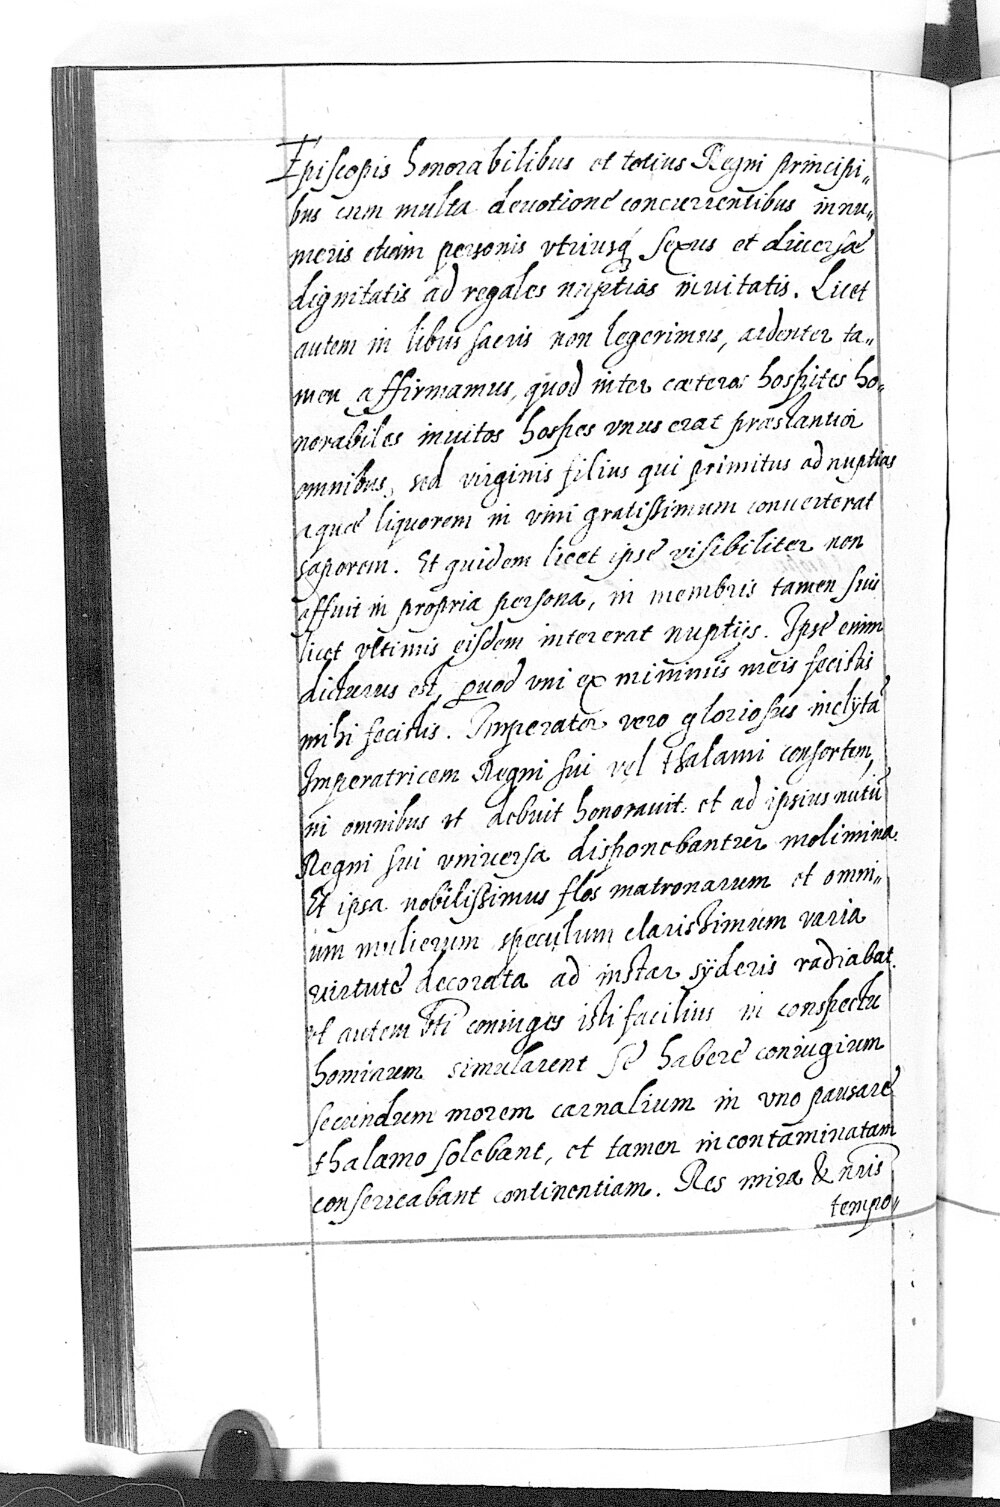 Episcopis honorabilibus et totius Regni principi„
bus cum multa deuotione concurrentibus innu„
meris etiam personis vtriusq́ sexus et diuersæ
dignitatis ad regales nuptias inuitatis. Licet
autem in libus sacris non legerimus, ardenter ta„
men affirmamus, quod inter cæteros hospites ho„
norabiles inuitos hospes vnus erat præstantior
omnibus, sed virginis filius qui primitus ad nuptias
aquæ liquorem in vini gratissimum conuerterat
saporem. Et quidem licet ipse visibiliter non
affuit in propria persona, in membris tamen suis
licet vltimis eisdem intererat nuptijs. Ipse enim
dicturus est, quod vni ex minimis meis fecistis
mihi fecistis. Imperator vero gloriosus inclÿtã
Imperatricem Regni sui vel thalami consortem,
in omnibus vt debuit honorauit et ad ipsius nutũ
Regni sui vniuersa disponebantur molimina.
Et ipsa nobilissimus flos matronarum et omni„
um mulierum speculum clarissimum varia
virtute decorata ad instar sÿderis radiabat.
vt autem sti coniuges isti facilius in conspectu
hominum simularent se habere coniugium
secundum morem carnalium in vno pausare
thalamo solebant, et tamen incontaminatam
conseruabant continentiam. Res mira & nris
tempo„